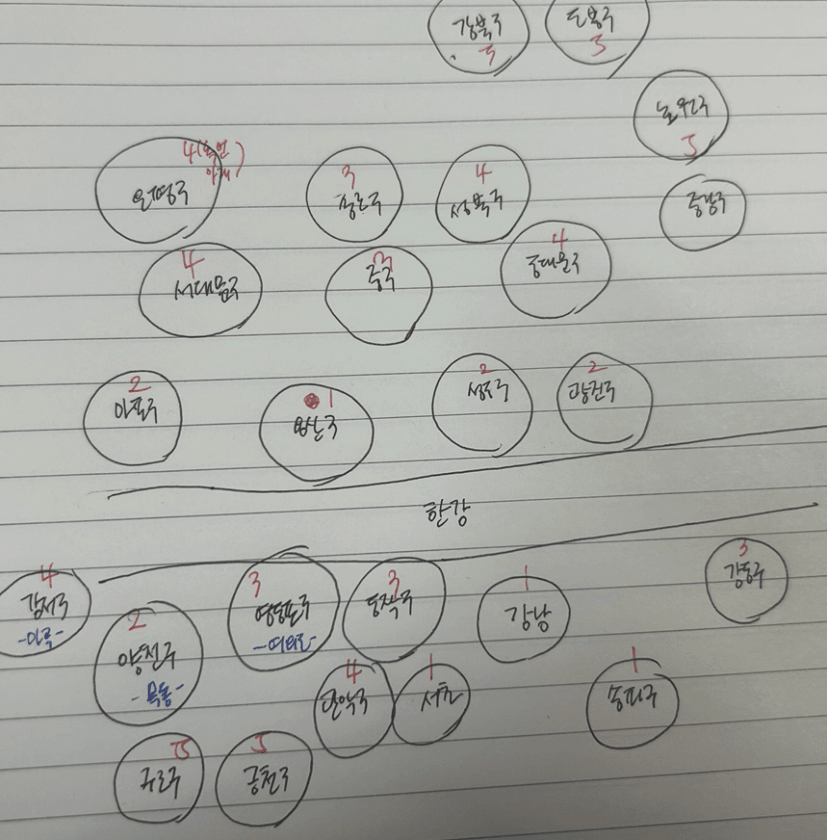 강북구
5
도봉구
5
노원구
5
4(녹번
아래)
은평구
3
종로구
4
성북구
중랑구
4
서대문구
3
중구
4
동대문구
2
마포구
1
용산구
2
성동구
2
광진구
한강
4
강서구
-마곡-
2
양천구
-목동-
3
영등포구
-여의도-
3
동작구
1
강남
3
강동구
4
관악구
1
서초
1
송파구
5
구로구
5
금천구